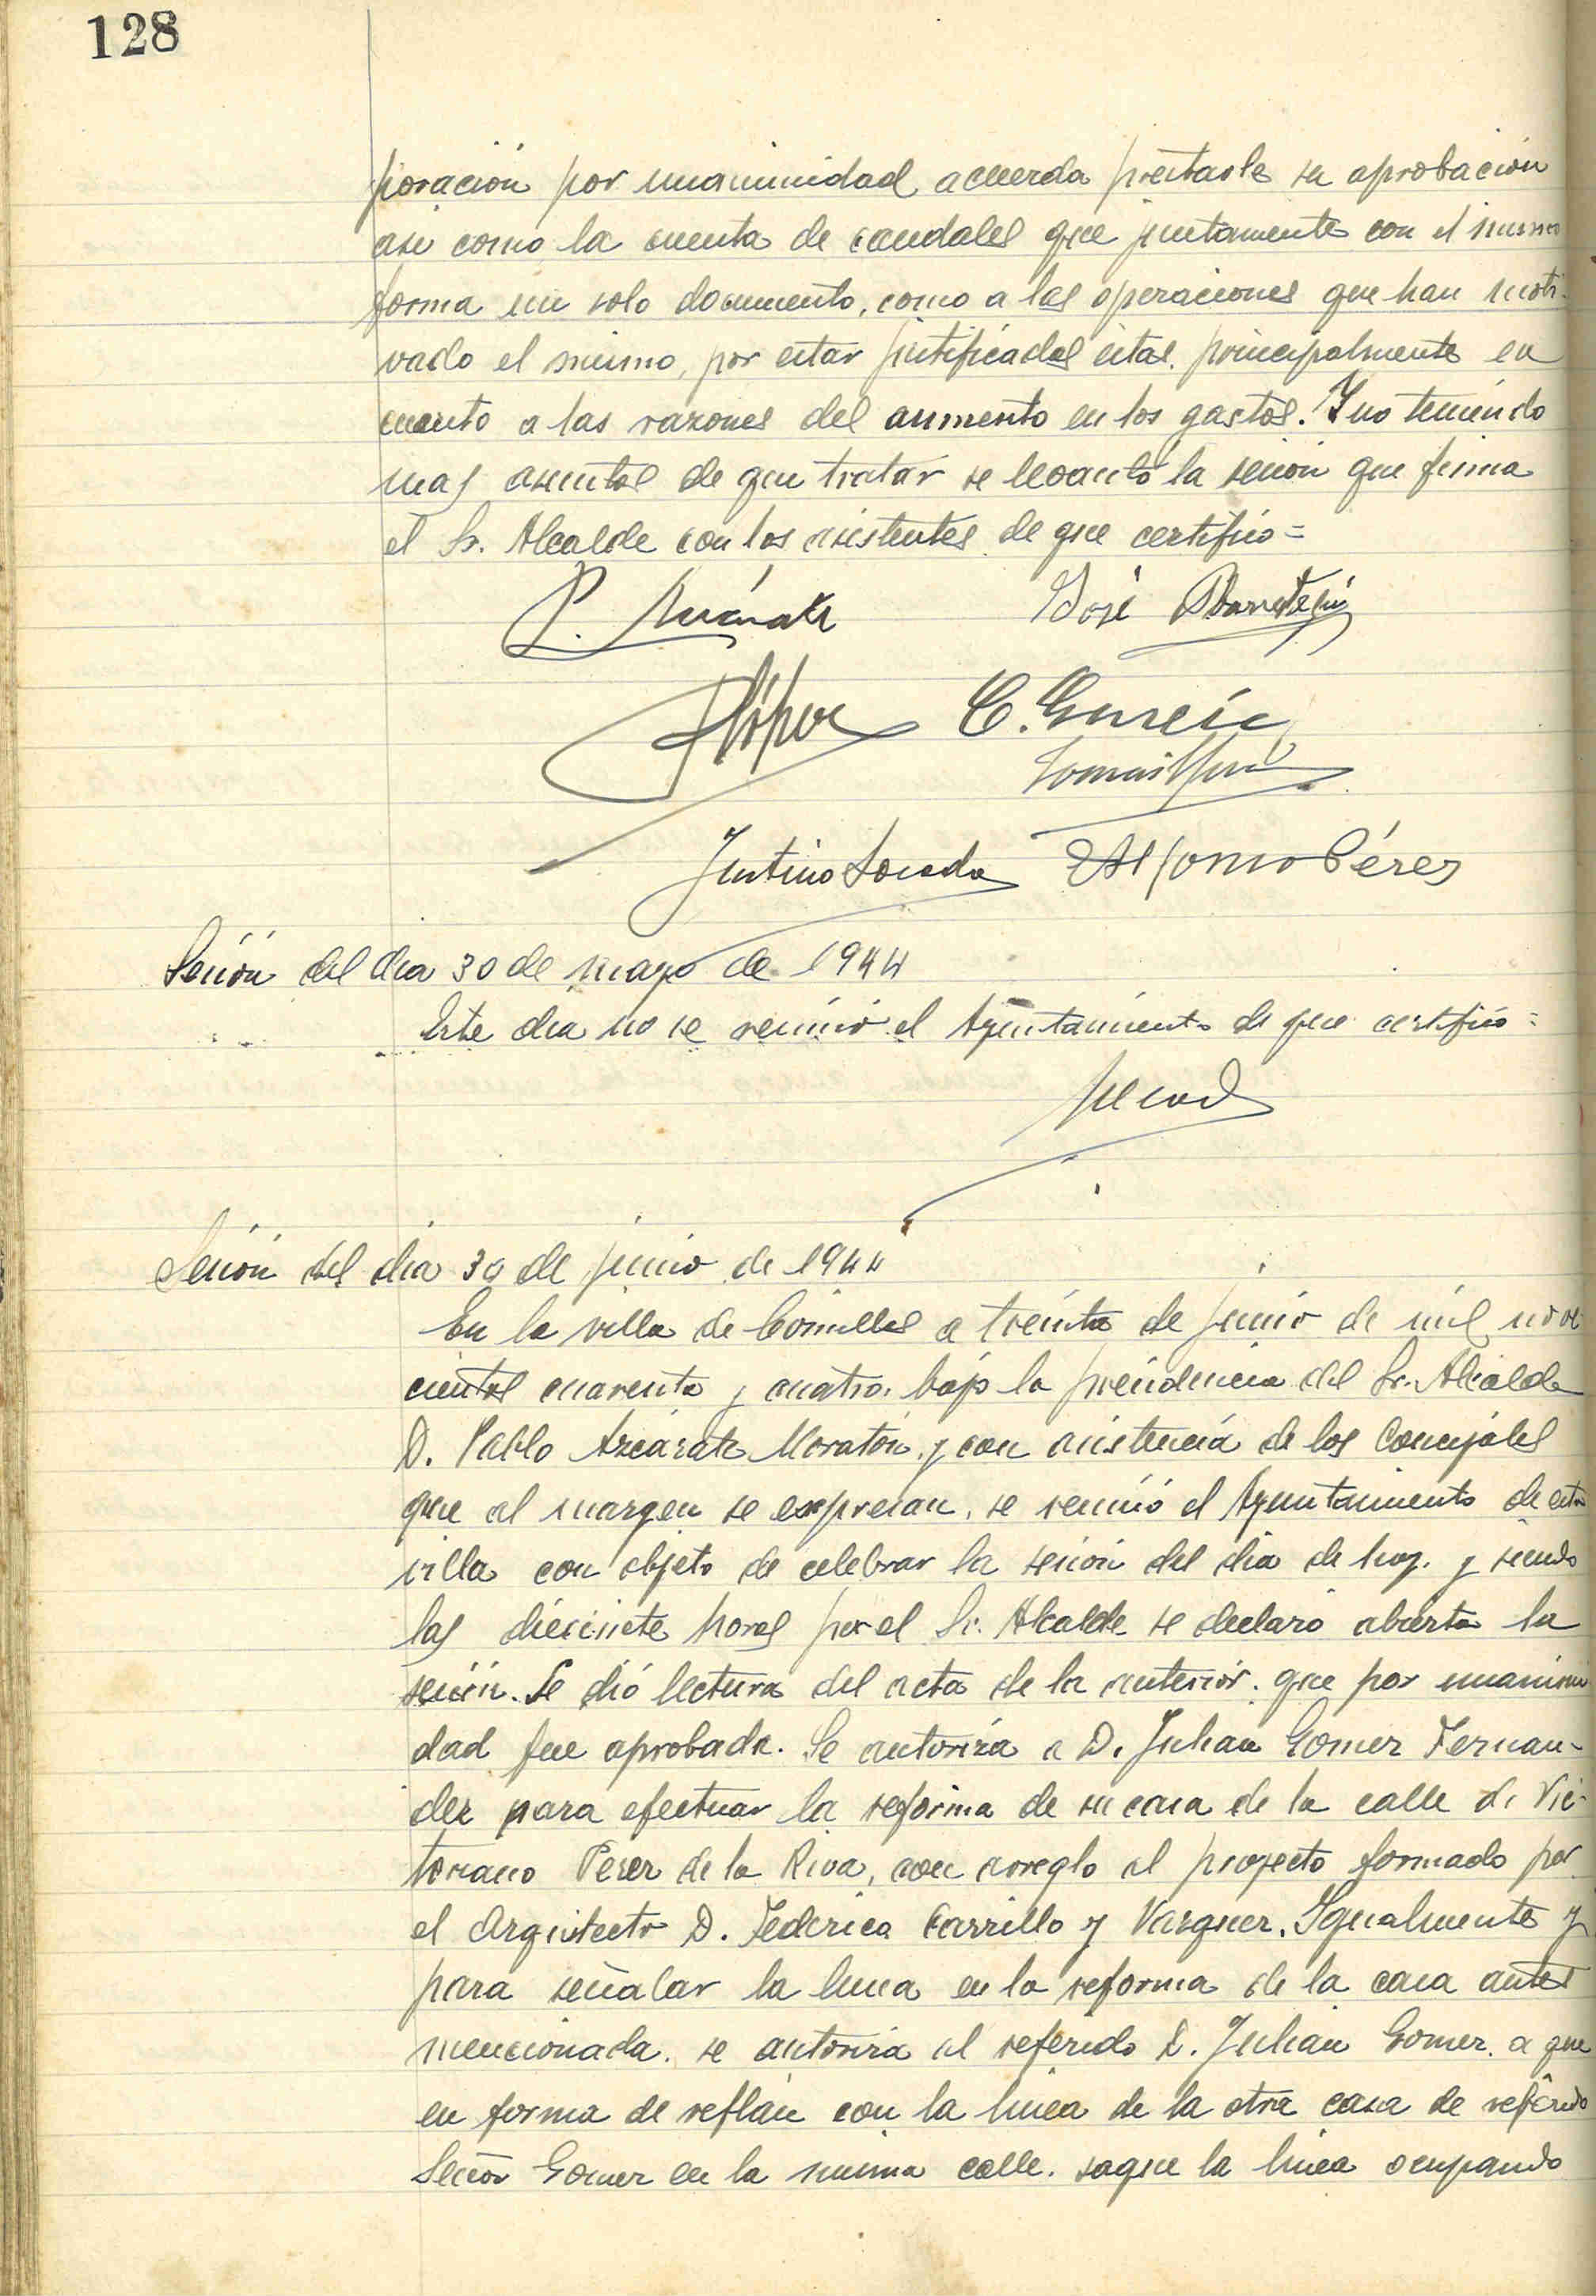 128
poración por unanimidad acuerda prestarle su aprobación
asi como la cuenta de caudales que juntamente con el mismo
forma un solo documento, como a las operaciones que han moti-
vado el mismo, por estar justificadas estas. principalmente en
cuanto a las razones del aumento en los gastos. Y no teniendo
mas asuntos de que tratar se levantó la sesión que firma
el Sr. Alcalde con los asistentes de que certifico =
P. Azcárate José
López C. García
Justino Losada Alfonso Pérez
Sesión del dia 30 de mayo de 1944
Este dia no se reunió el Ayuntamiento de que certifico =
Sesión del dia 30 de junio de 1944
En la villa de Comillas a treinta de junio de mil nove-
cientos cuarenta y cuatro. bajo la presidencia del Sr. Alcalde
D. Pablo Azcárate Moratón, y con asistencia de los Concejales
que al margen se expresan, se reunió el Ayuntamiento de esta
villa con objeto de celebrar la sesión del dia de hoy. y siendo
las diecisiete horas por el Sr. Alcalde se declaró abierta la
sesión. Se dió lectura del acta de la anterior. que por unanimi
dad fue aprobada. Se autoriza a D. Julián Gomez Fernan-
dez para efectuar la reforma de su casa de la calle de Vic-
toriano Perez de la Riva, con arreglo al proyecto formado por
el Arquitecto D. Federico Carrillo y Vazquez. Igualmente y
para señalar la linea en la reforma de la casa antes
mencionada. se autoriza al referido D. Julián Gomez. a que
en forma de reflán con la linea de la otra casa de referido
Señor Gomez en la misma calle. saque la linea ocupando